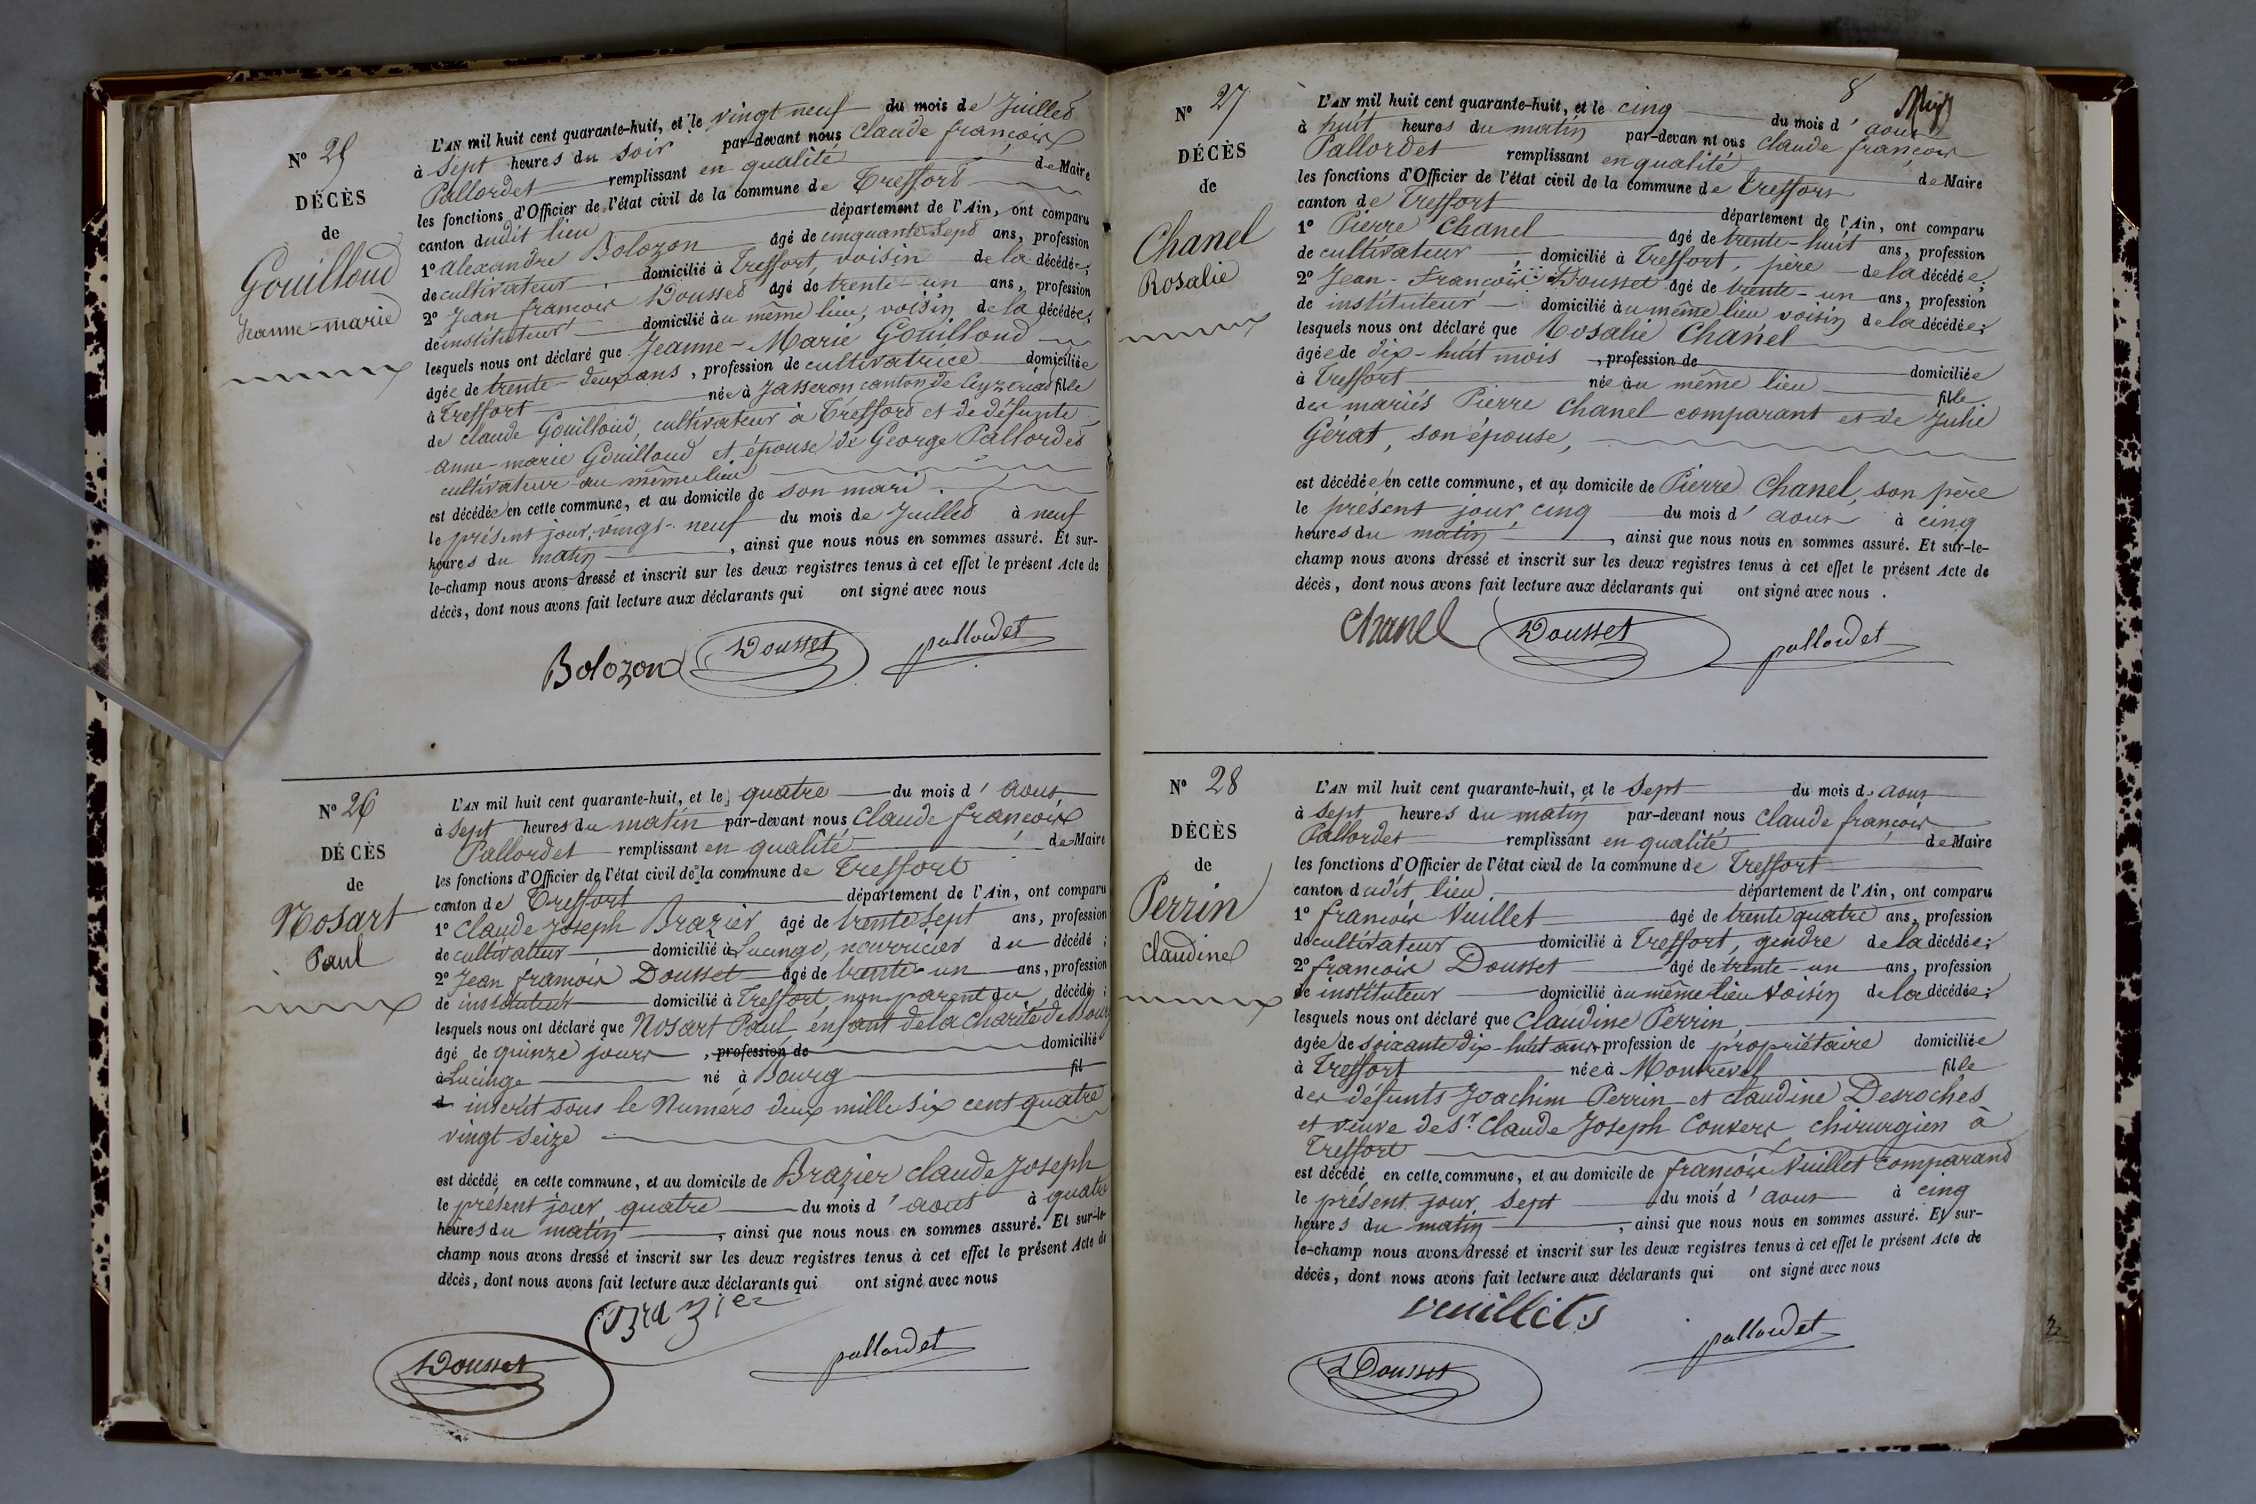 N° 25
DÉCÈS
de
Gouilloud
Jeanne-marie
L'AN mil huit cent quarante-huit, et le vingt neuf du mois de Juillet
à sept heures du soir par-devant nous Claude françois
Pallordet remplissant en qualité de Maire
les fonctions d'Officier de l'état civil de la commune de Treffort
canton dudit lieu département de l'Ain, ont comparu
1° alexandre Bolozon âgé de cinquante sept ans, profession
de cultivateur, domicilié à Treffort, voisin de la décédée;
2° Jean françois Dousset âgé de trente-un ans, profession
de instituteur domicilié au même lieu, voisin de la décédée;
lesquels nous ont déclaré que Jeanne-Marie Gouilloud
âgée de trente-deux ans, profession de cultivatrice domiciliée
à Treffort née à Jasseron canton de Ceyzeriat fille
de Claude Gouilloud, cultivateur à Treffort et de défunte
anne-marie Gouilloud et épouse de George Pallordet
cultivateur au même lieu
est décédée en cette commune, et au domicile de son mari
le présent jour, vingt-neuf du mois de Juillet à neuf
heures du matin, ainsi que nous nous en sommes assuré. Et sur-
le-champ nous avons dressé et inscrit sur les deux registres tenus à cet effet le présent Acte de
décès, dont nous avons fait lecture aux déclarants qui ont signé avec nous
Bolozon Dousset pallordet
N° 26
DÉCÈS
de
Nosart
Paul
L'AN mil huit cent quarante-huit, et le quatre du mois d'aout
à sept heures du matin par-devant nous Claude françois
Pallordet remplissant en qualité de Maire
les fonctions d'Officier de l'état civil de la commune de Treffort
canton de Treffort département de l'Ain, ont comparu
1° Claude Joseph Brazier âgé de trente sept ans, profession
de cultivateur domicilié à Lucinge, nourricier du décédé;
2° Jean françois Dousset âgé de trente-un ans, profession
de instituteur domicilié à Treffort, non parent du décédé;
lesquels nous ont déclaré que Nosart Paul enfant de la charité de Bourg
âgé de quinze jours, profession de domicilié
à Lucinge né à Bourg fil
inscrit sous le Numéro deux mille six cent quatre
vingt seize
est décédé en cette commune, et au domicile de Brazier Claude Joseph
le présent jour quatre du mois d'aout à quatre
heures du matin, ainsi que nous nous en sommes assuré. Et sur-le-
champ nous avons dressé et inscrit sur les deux registres tenus à cet effet le présent Acte de
décès, dont nous avons fait lecture aux déclarants qui ont signé avec nous
Brazier
Dousset pallordet
8
N° 27
DÉCÈS
de
Chanel
Rosalie
L'AN mil huit cent quarante-huit, et le cinq du mois d'aout
à huit heures du matin par-devan nt ous Claude françois
Pallordet remplissant en qualité de Maire
les fonctions d'Officier de l'état civil de la commune de Treffort
canton de Treffort département de l'Ain, ont comparu
1° Pierre Chanel âgé de trente-huit ans, profession
de cultivateur, domicilié à Treffort, père de la décédée;
2° Jean-François Dousset âgé de trente-un ans, profession
de instituteur domicilié au même lieu voisin de la décédée;
lesquels nous ont déclaré que Rosalie Chanel
âgée de dix-huit mois, profession de domiciliée
à Treffort née au même lieu fille
des mariés Pierre Chanel comparant et de Julie
Gérat, son épouse,
est décédée en cette commune, et au domicile de Pierre Chanel, son père
le présent jour, cinq du mois d'aout à cinq
heures du matin, ainsi que nous nous en sommes assuré. Et sur-le-
champ nous avons dressé et inscrit sur les deux registres tenus à cet effet le présent Acte de
décès, dont nous avons fait lecture aux déclarants qui ont signé avec nous.
Chanel Dousset pallordet
N° 28
DÉCÈS
de
Perrin
Claudine
L'AN mil huit cent quarante-huit, et le sept du mois d. aout
à sept heures du matin par-devant nous Claude françois
Pallordet remplissant en qualité de Maire
les fonctions d'Officier de l'état civil de la commune de Treffort
canton dudit lieu département de l'Ain, ont comparu
1° françois Vuillet âgé de trente quatre ans, profession
de cultivateur domicilié à Treffort, gendre de la décédée;
2° françois Dousset âgé de trente-un ans, profession
de instituteur domicilié au même lieu voisin de la décédée;
lesquels nous ont déclaré que Claudine Perrin,
âgée de soixante dix-huit ans profession de propriétaire domiciliée
à Treffort née à Montrevel fille
des défunts Joachim Perrin et Claudine Desroches
et veuve de Sr. Claude Joseph Convers chirurgien à
Treffort
est décédé en cette commune, et au domicile de françois Vuillet comparand
le présent jour sept du mois d'aout à cinq
heures du matin, ainsi que nous nous en sommes assuré. Et sur-
le-champ nous avons dressé et inscrit sur les deux registres tenus à cet effet le présent Acte de
décès, dont nous avons fait lecture aux déclarants qui ont signé avec nous
vuillets
Dousset pallordet